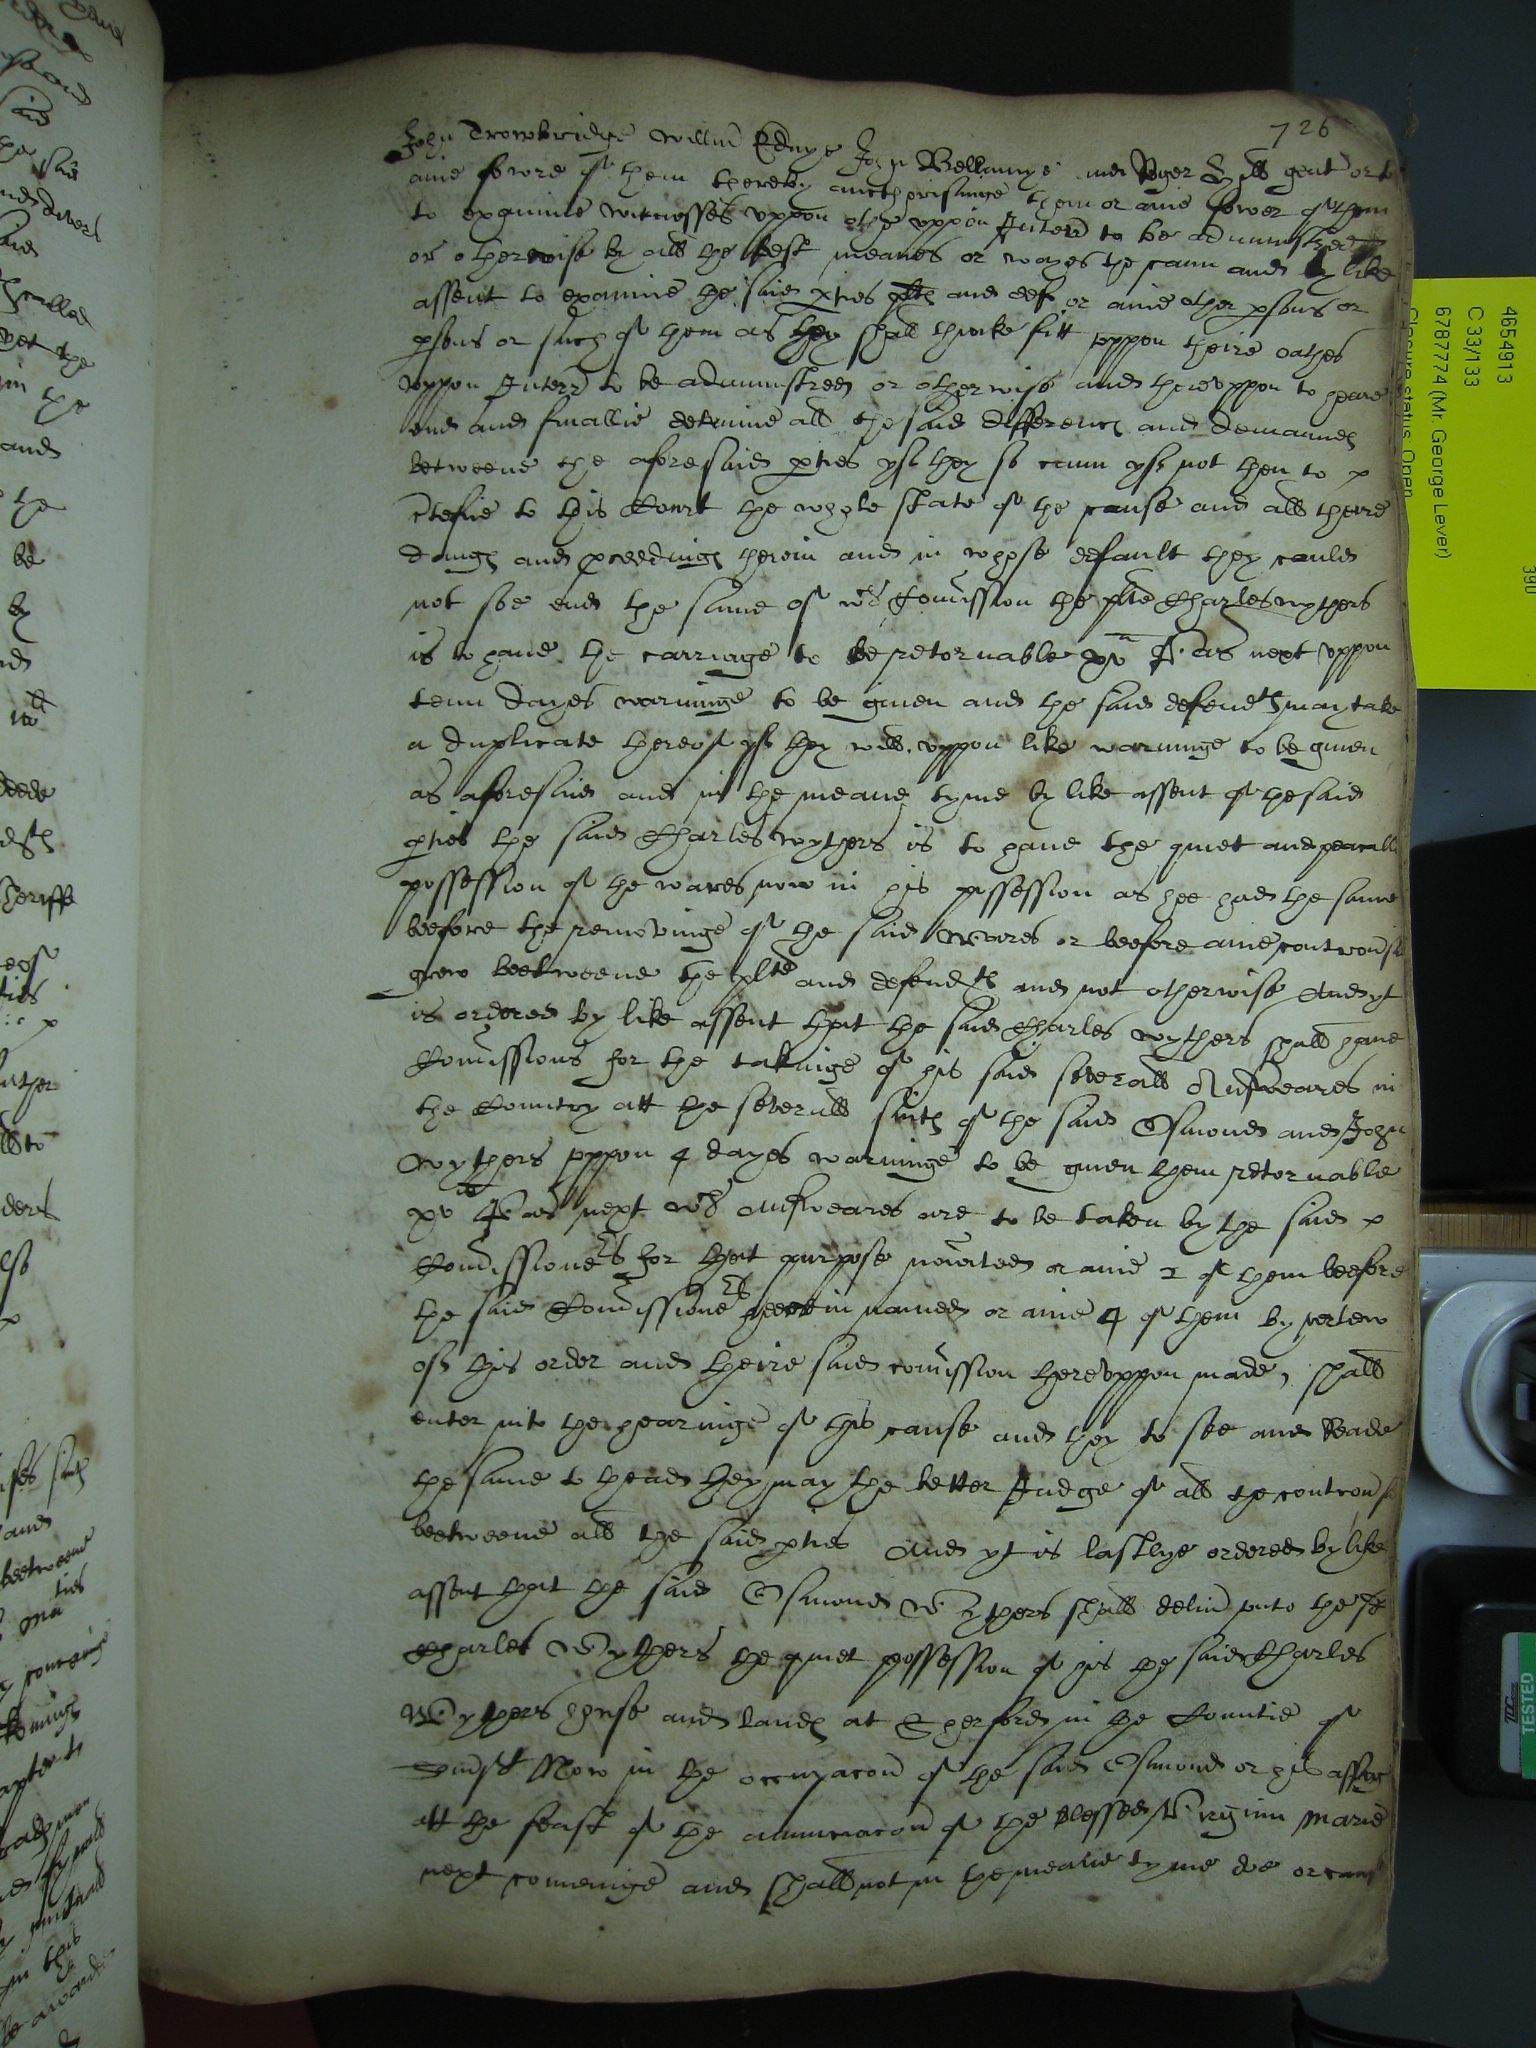 726
John Trowbridge Willm Ednye John Bellamye and Roger Gyll gent or to
anie fowre of them thereby aucthorisinge them or anie fower of them
to examine witnesses vppon othe vppon Interr to be administred
or otherwise by all the best meanes or wayes the cann and by like
assent to examine the said pties plts and def or anie other psons or
psons or such of them as they shall thinke fitt vppon theire oathes
vppon Interr to be administred or otherwise and therevppon to heare
end and finallie determine all the said differencs and demannds
betweene the aforesaid pties yf they so cann yf not then to
ctefie to this Court the whole state of the cause and all theire
doings and pceedings therein and in whose default they could
not soe end the same of wch Comission the plte Charles Wythers
is to haue the carriage to be retornable xv Pas next vppon
tenn dayes warninge to be giuen and the said defendts may take
a duplicate thereof yf they will vppon like warninge to be giuen
as aforesaid and in the meane tyme by like assent of the said
pties the said Charles Wythers is to haue the quiet and peacable
possession of the wares now in his possession as hee had the same
beefore the removinge of the said Wares or beefore anie controusie
grew beetweene the plte and defendts and not otherwise And yt
is ordered by like assent that the said Charles Wythers shall haue
Comissions for the takinge of his said seuerall Answeares in
the Country att the seuerall suits of the said Osmond and John
Wythers vppon 4 dayes warninge to be giuen them retornable
xv Pas next wch answeares are to be taken by the said
Comissioners for that purpose nominated or anie 2 of them beefore
the said Comissioners herein named or anie 4 of them by vertew
of this order and theire said comission therevppon made, shall
enter into the hearinge of this cause and they to see and Reade
the same to thend they may the better Judge of all the controusies
beetweene all the said pties And yt is lastlye ordered by like
assent that the said Osmond Wythers shall deliu vnto the sd
Charles Wythers the quiet possession of his the said Charles
Wythers house and lands at Sherford in the Countie of
Somst Now in the occupacon of the said Osmond or his assigs
att the feast of the annunciacon of the blessed Virginn Marie
next comeinge and shall not in the meane tyme doe or cause
4654913
C 33/133
6787774 (Mr. George Lever)
Closure status: Open
390
TESTED